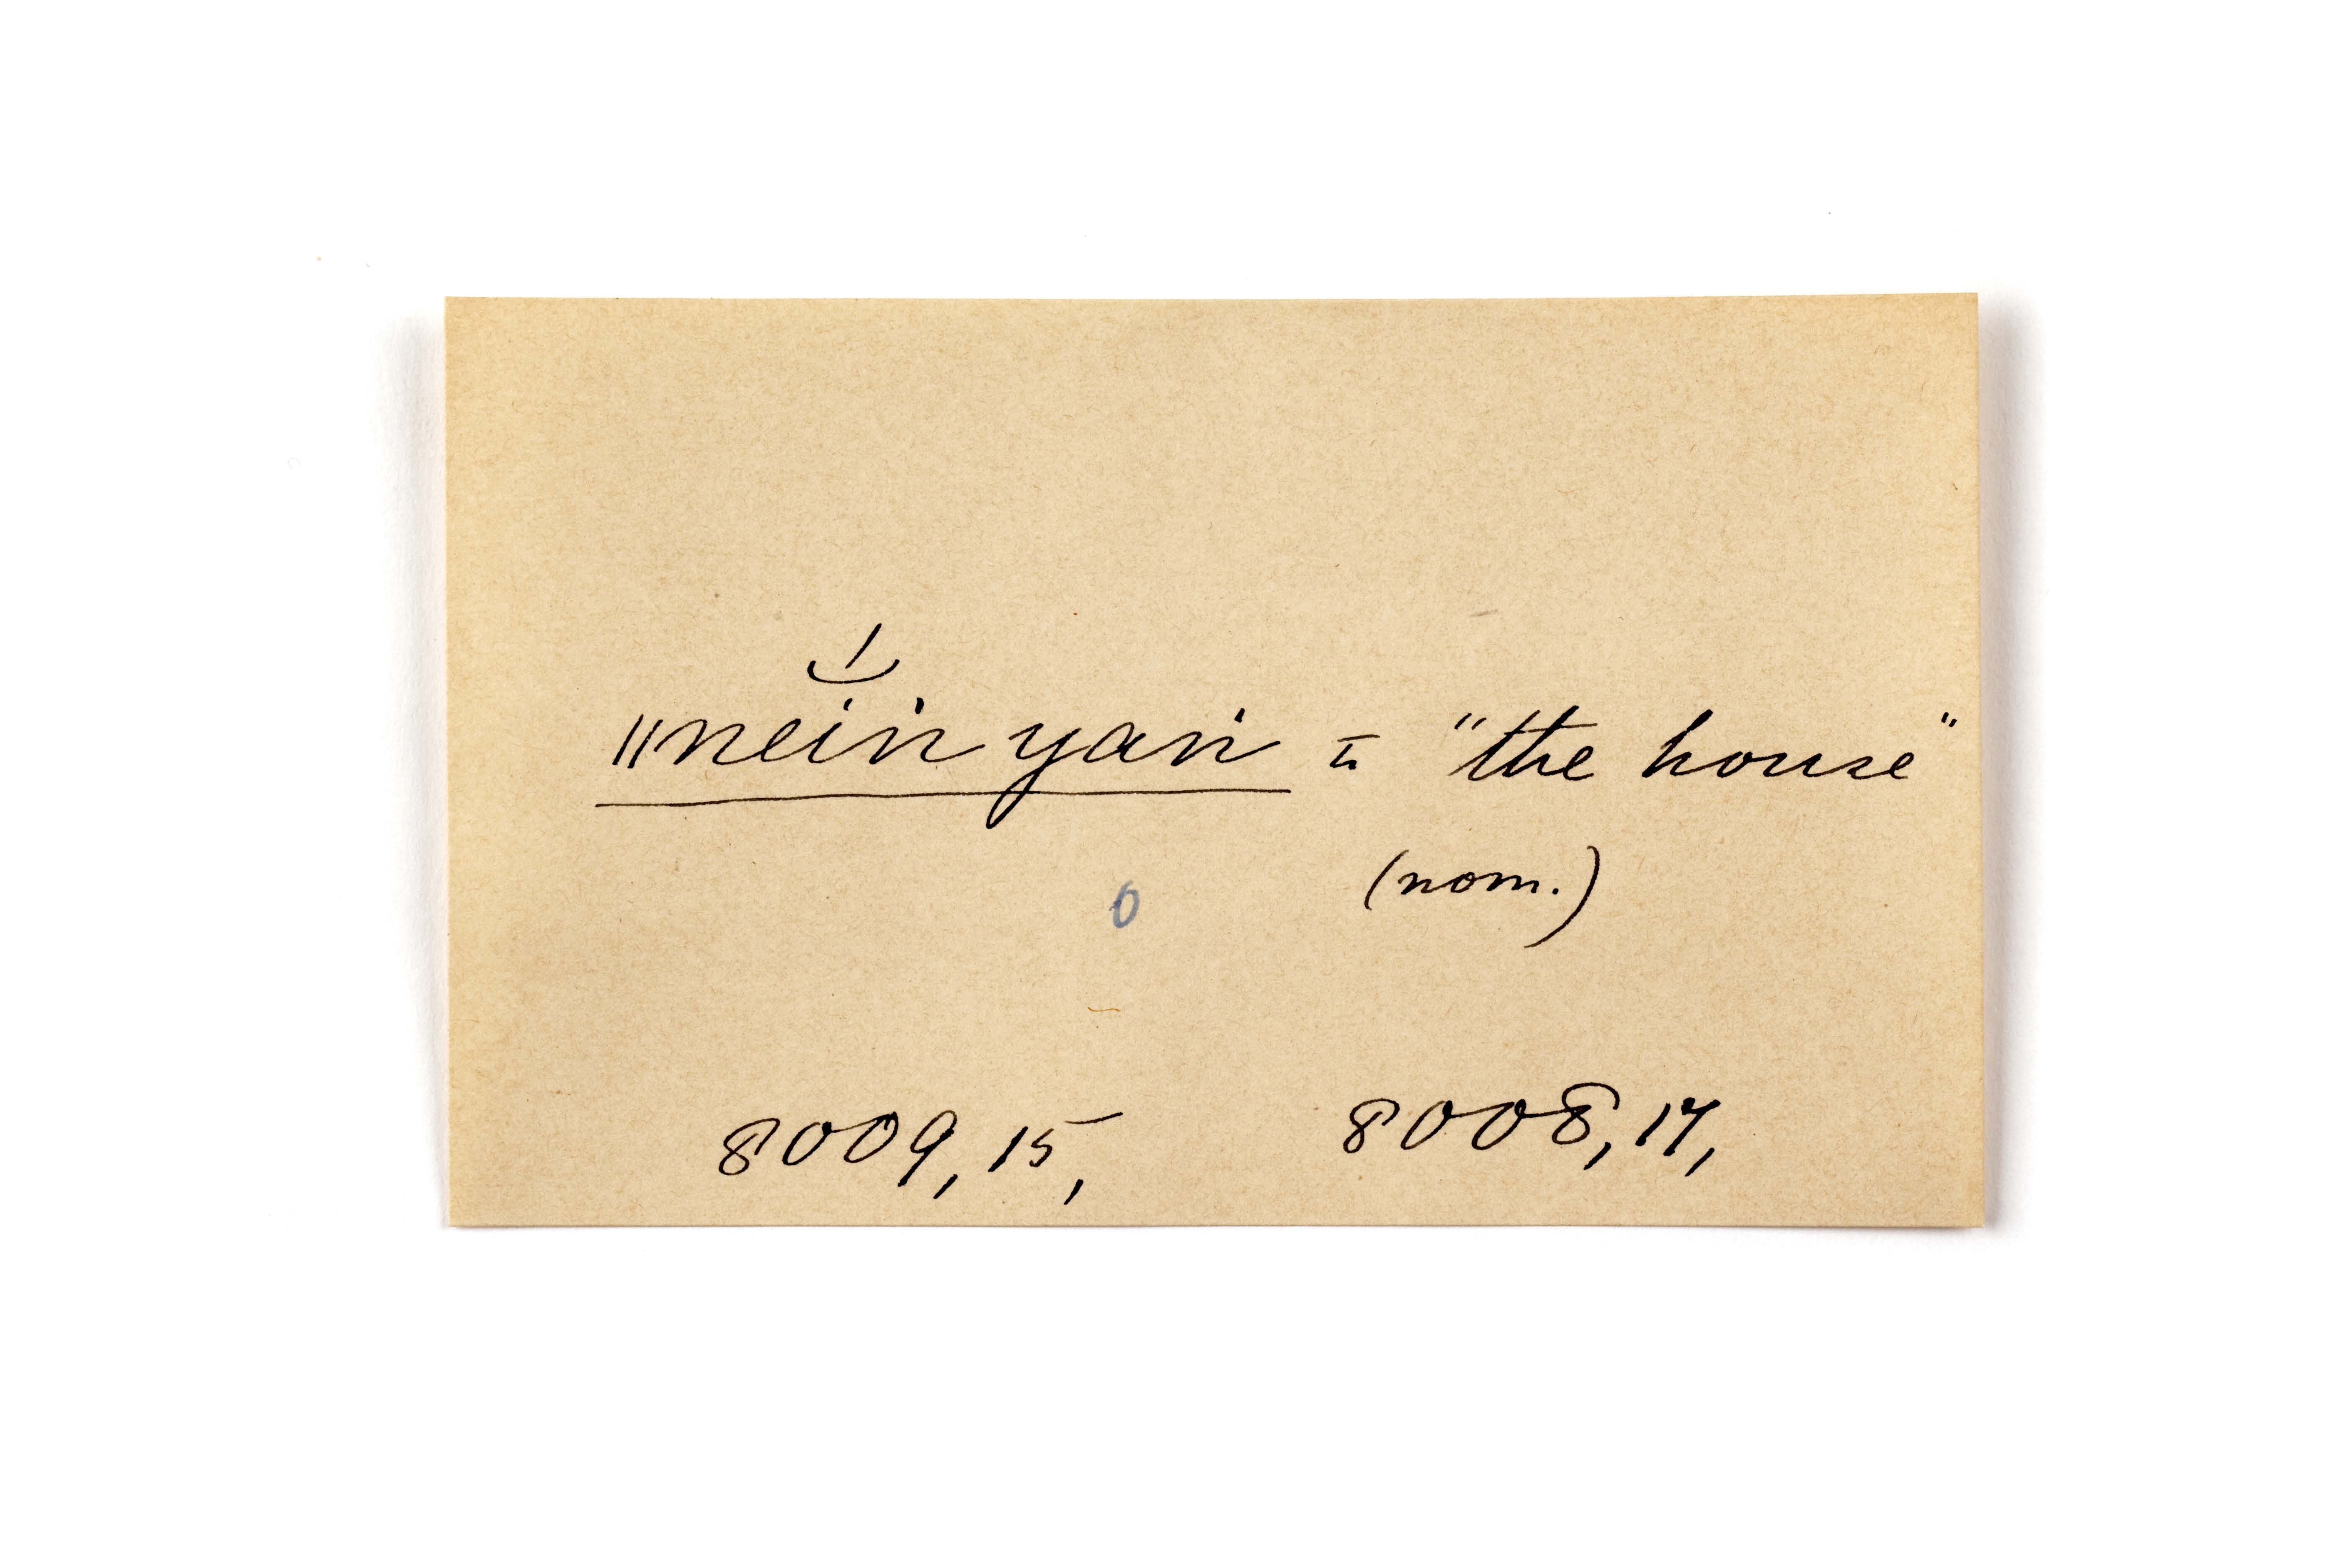 "neiṅ yaṅ = "the house"
(nom.)
0
8009, 15, 8008, 17,